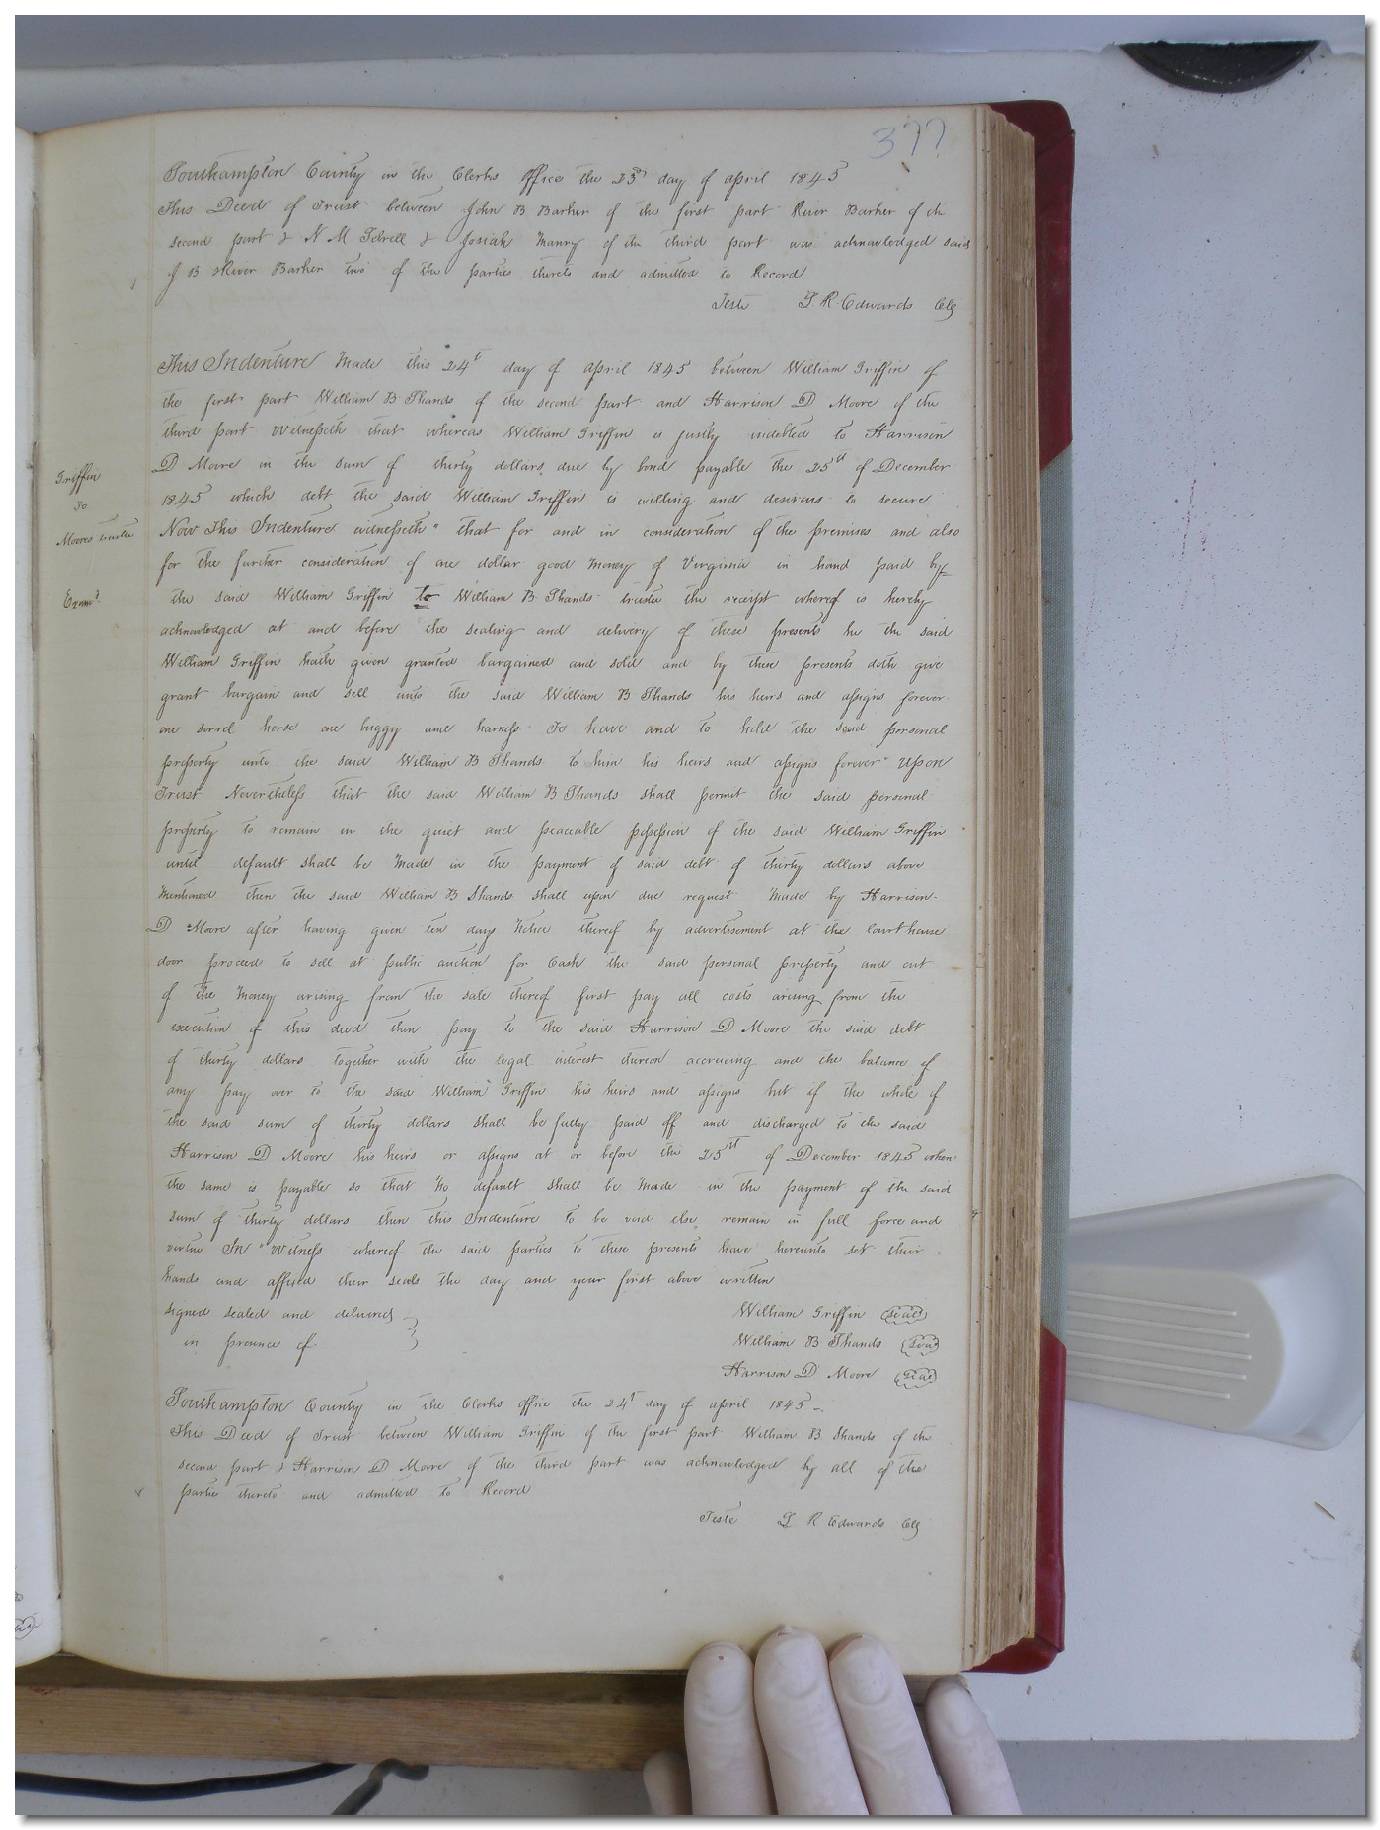 377
Southampton County in the Clerks office the 23rd day of april 1845
This Deed of Trust between John B Barker of the first part River Barker of the
second part & N M Sebrell & Josiah Manry of the third part was acknowledged said
J B & River Barker two of the parties thereto and admitted to Record
Teste L. R. Edwards Clk
This Indenture Made this 24th day of april 1845 between William Griffin of
the first part William B Shands of the second part and Harrison D Moore of the
third part witnesseth that whereas William Griffin is justly indebted to Harrison
D Moore in the sum of thirty dollars due by bond payable the 25th of December
1845 which debt the said William Griffin is willing and desirous to secure
Griffin
To
Moores trustee
Now This Indenture witnesseth" that for and in consideration of the premises and also
for the further consideration of one dollar good money of Virginia in hand paid by
Exam'd
the said William Griffin to William B Shands trustee the receipt whereof is hereby
acknowledged at and before the sealing and delivery of these presents he the said
William Griffin hath given granted bargained and sold and by these presents doth give
grant bargain and sell unto the said William B Shands his heirs and assigns forever
one sorrel horse one buggy and harness To have and to hold the said personal
property unto the said William B Shands to him his heirs and assigns forever" Upon
Trust Nevertheless that the said William B Shands shall permit the said personal
property to remain in the quiet and peaceable possession of the said William Griffin
until default shall be made in the payment of said debt of thirty dollars above
mentioned then the said William B Shands shall upon due request made by Harrison
D Moore after having given ten days notice thereof by advertisement at the Court house
door proceed to sell at public auction for Cash the said personal property and out
of the money arising from the sale thereof first pay all costs arising from the
execution of this deed then pay to the said Harrison D Moore the said debt
of thirty dollars together with the legal interest thereon accrueing and the balance if
any pay over to the said William Griffin his heirs and assigns but if the whole of
the said sum of thirty dollars shall be fully paid off and discharged to the said
Harrison D Moore his heirs or assigns at or before the 25th of December 1845 when
the same is payable so that no default shall be made in the payment of the said
sum of thirty dollars then this Indenture to be void else remain in full force and
virtue In "witness whereof the said parties to these presents have hereunto set their
hands and affixed their seals the day and year first above written
signed sealed and delivered William Griffin seal
in presence of William B Shands seal
Harrison D Moore seal
Southampton County in the Clerks office the 24t day of april 1845
This Deed of Trust between William Griffin of the first part William B Shands of the
second part & Harrison D Moore of the third part was acknowledged by all of the
parties thereto and admitted to Record
Teste L R Edwards Clk